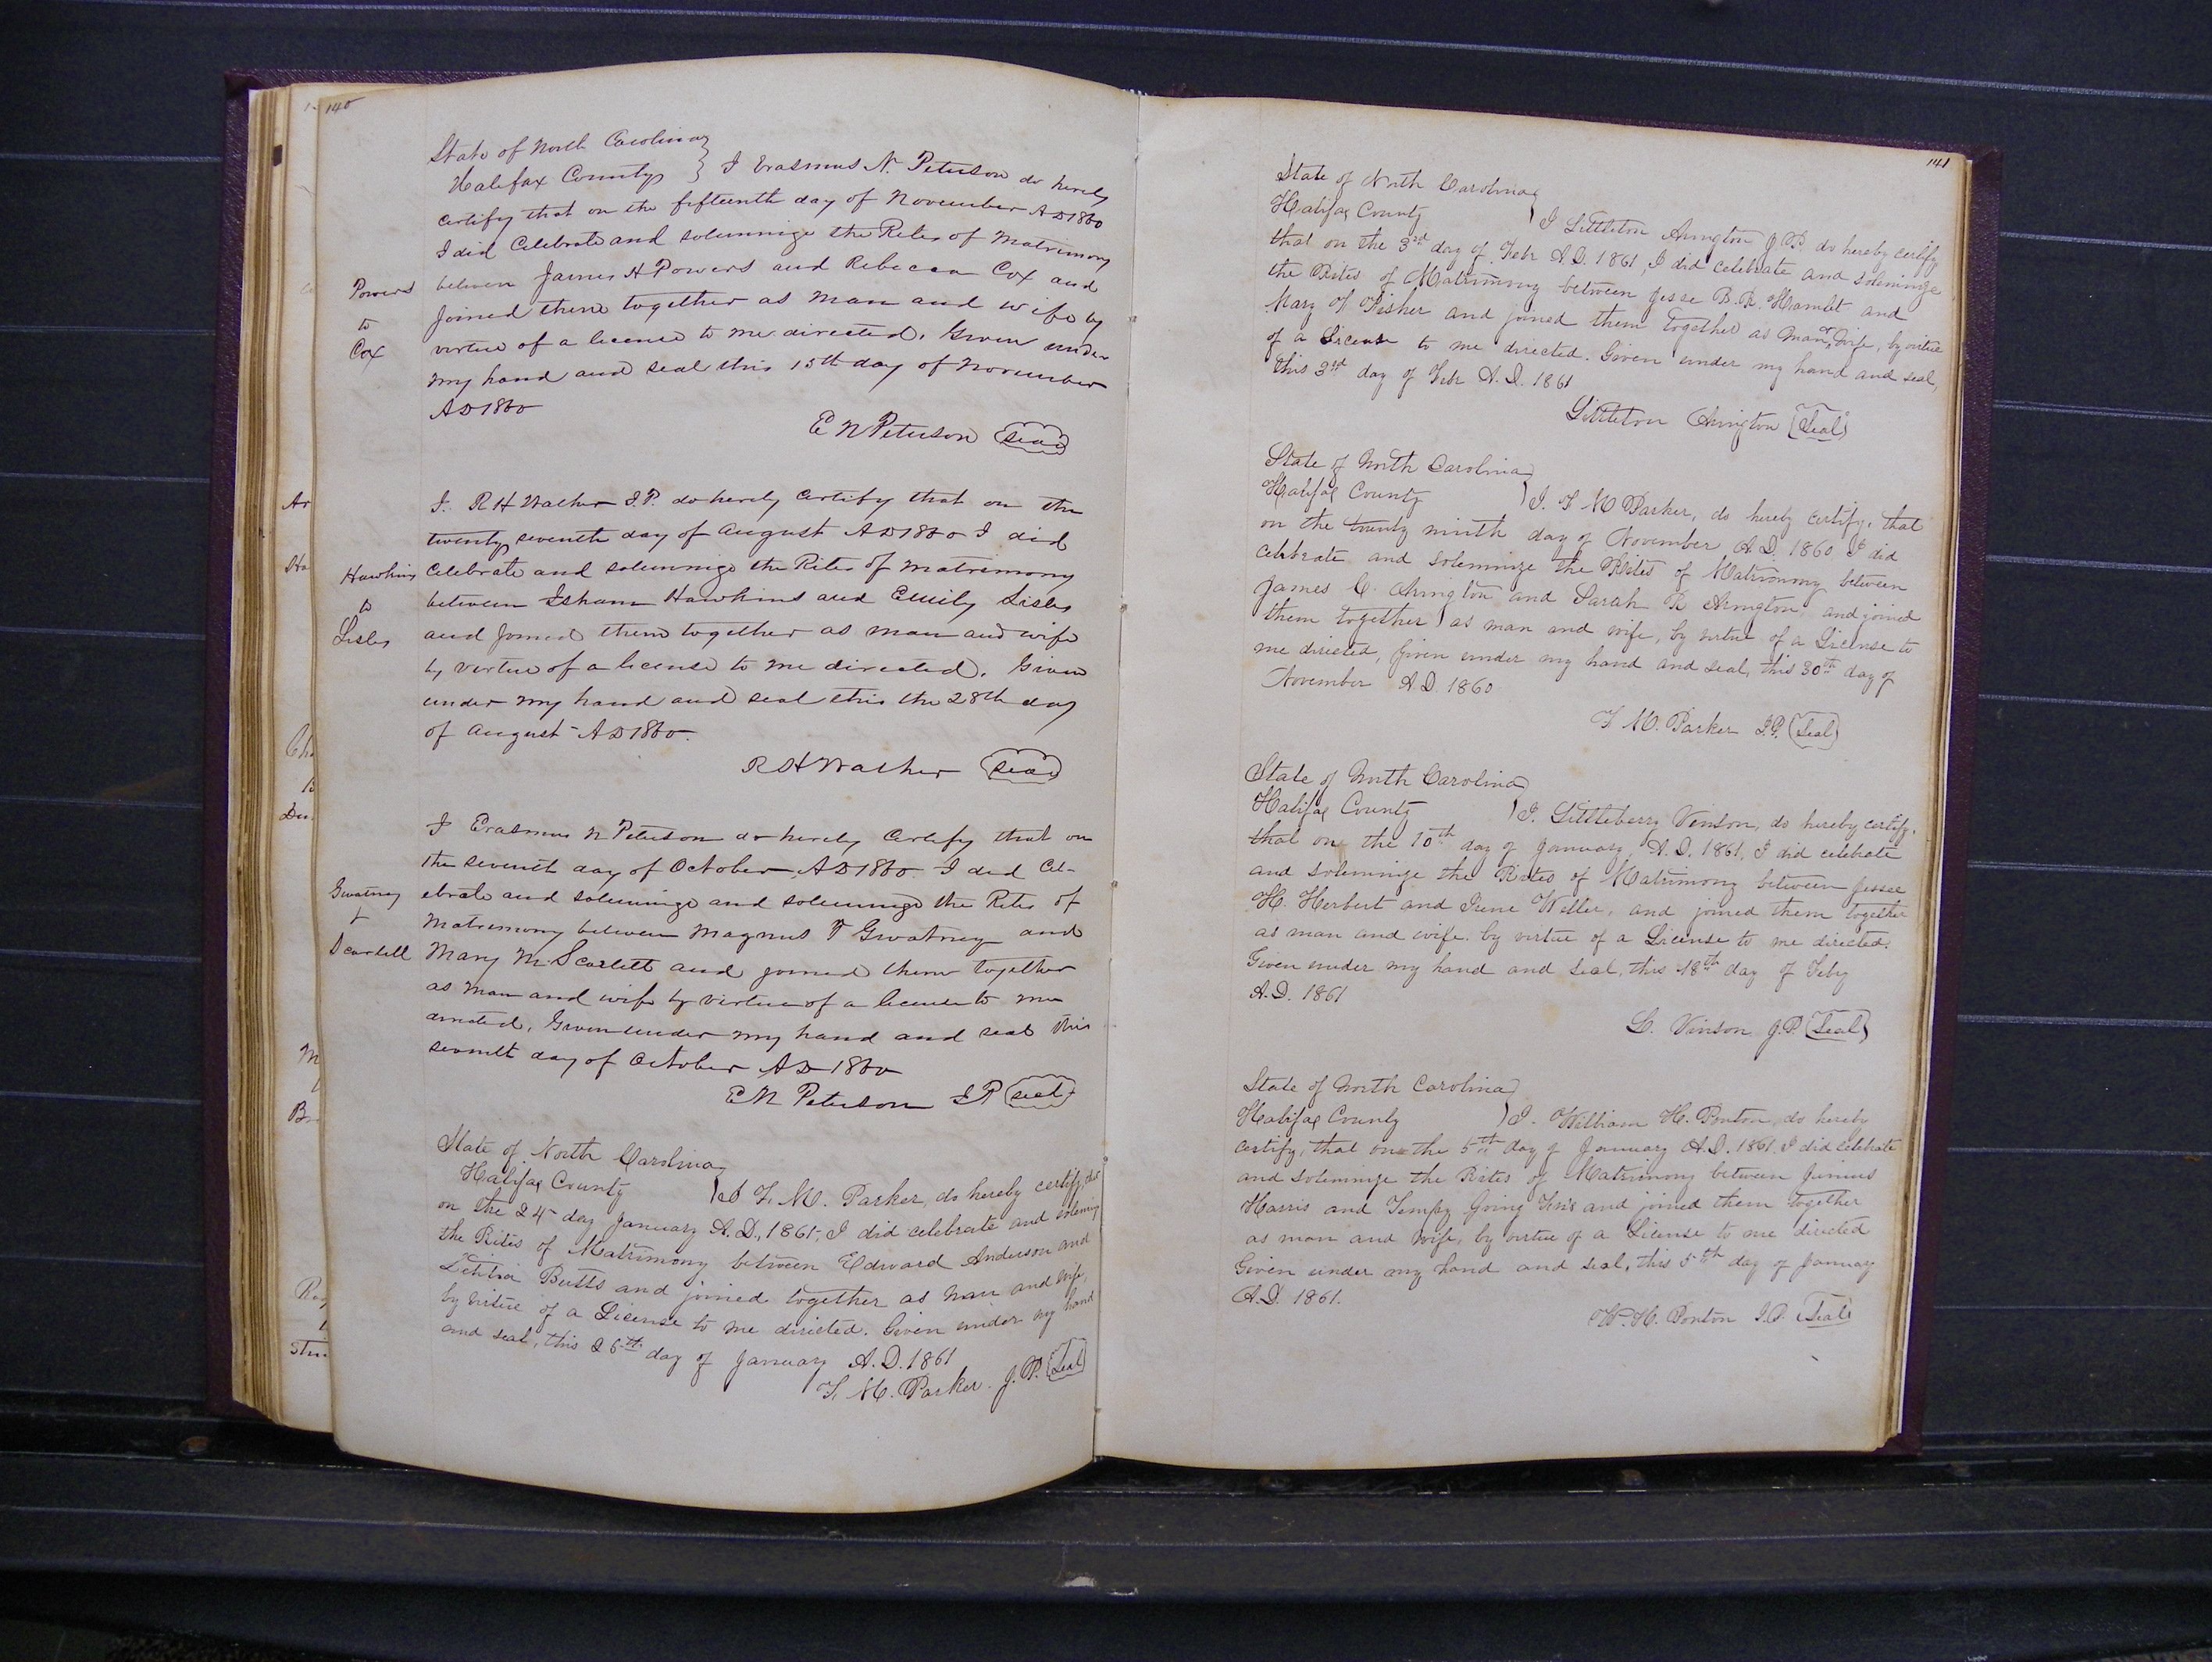 140
State of North Carolina
Halifax County } I Erasmus N. Peterson do hereby
certify that on the fifteenth day of November AD 1860
I did Celebrate and solemnize the Rites of Matrimony
between James H Powers and Rebecca Cox and
joined them together as man and wife by
virtue of a license to me directed. Given under
my hand and seal this 15th day of November
AD 1860
E N Peterson seal
Powers
to
Cox
I. R H Walker J.P. do hereby Certify that on the
twenty seventh day of August AD 1860 I did
Celebrate and solemnize the Rites of Matrimony
between Isham Hawkins and Emily Lisles
and joined them together as man and wife
by virtue of a license to me directed. Given
under my hand and seal this the 28th day
of August AD 1860.
R H Walker seal
Hawkins
to
Lisles
I Erasmus N Peterson do hereby Certify that on
the seventh day of October AD 1860. I did Cel-
ebrate and solemnize and solemnize the Rites of
Matrimony between Magnus T Gwatney and
Mary M. Scarlett and joined them together
as man and wife by virtue of a license to me
directed, Given under my hand and seal this
seventh day of October AD 1860
E N Peterson J P seal
Gwatney
t
Scarlett
State of North Carolina
Halifax County } I F. M. Parker, do hereby certify, that
on the 24 day January A.D., 1861, I did celebrate and solemniz
the Rites of Matrimony between Edward Anderson and
Letitia Butts and joined together as man and wife,
by virtue of a License to me directed. Given under my hand
and seal, this 26th day of January A.D. 1861
F. M. Parker. J.P. Seal
141
State of North Carolina
Halifax County } I Littleton Arington J.P. do hereby certify
that on the 3rd day of Febr A.D. 1861, I did celebrate and solemnize
the Rites of Matrimony between Jesse B. R. Hamlet and
Mary Fisher and joined them together as Man & Wife, by virtue
of a License to me directed. Given under my hand and seal,
this 3rd day of Febr A.D. 1861
Littleton Arington Seal
State of North Carolina
Halifax County } I. F M Parker, do hereby certify, that
on the twenty ninth day of November A.D. 1860 I did
celebrate and solemnize the Rites of Matrimony between
James C. Arington and Sarah R Arington and joined
them together as man and wife, by virtue of a License to
me directed, Given under my hand and seal, this 30th day of
November A.D. 1860
F M. Parker J.P. Seal
State of North Carolina
Halifax County } I. Littleberry Venson, do hereby certify,
that on the 10th day of January, A.D. 1861, I did celebrate
and solemnize the Rites of Matrimony between Jessee
H. Herbert and Irene Weller, and joined them together
as man and wife. by virtue of a License to me directed.
Given under my hand and seal, this 18th day of Feby
A.D. 1861
L. Vinson J.P. Seal
State of North Carolina
Halifax County } I. William H. Ponton, do hereby
certify, that on the 5th day of January A.D. 1861. I did celebrate
and solemnize the Rites of Matrimony between Junius
Harris and Tempy Going and joined them together
as man and wife, by virtue of a License to me directed
Given under my hand and seal, this 5th day of January
A.D. 1861.
W. H. Ponton J.P. Seal